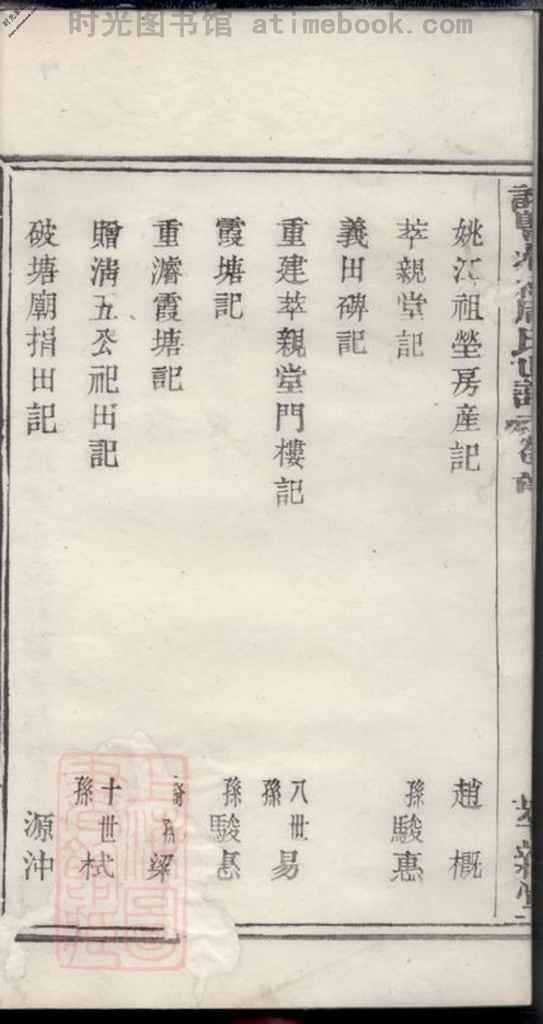 时光图书馆 atimebook.com
姚江祖塋房產記 趙概
萃親堂記 孫駿惠
義田碑記
重建萃親堂門樓記 八世孫易
霞塘記 孫駿惎
重濬霞塘記 裔孫梁
贈滿五公祀田記 十世孫栻
破塘廟捐田記 源沖